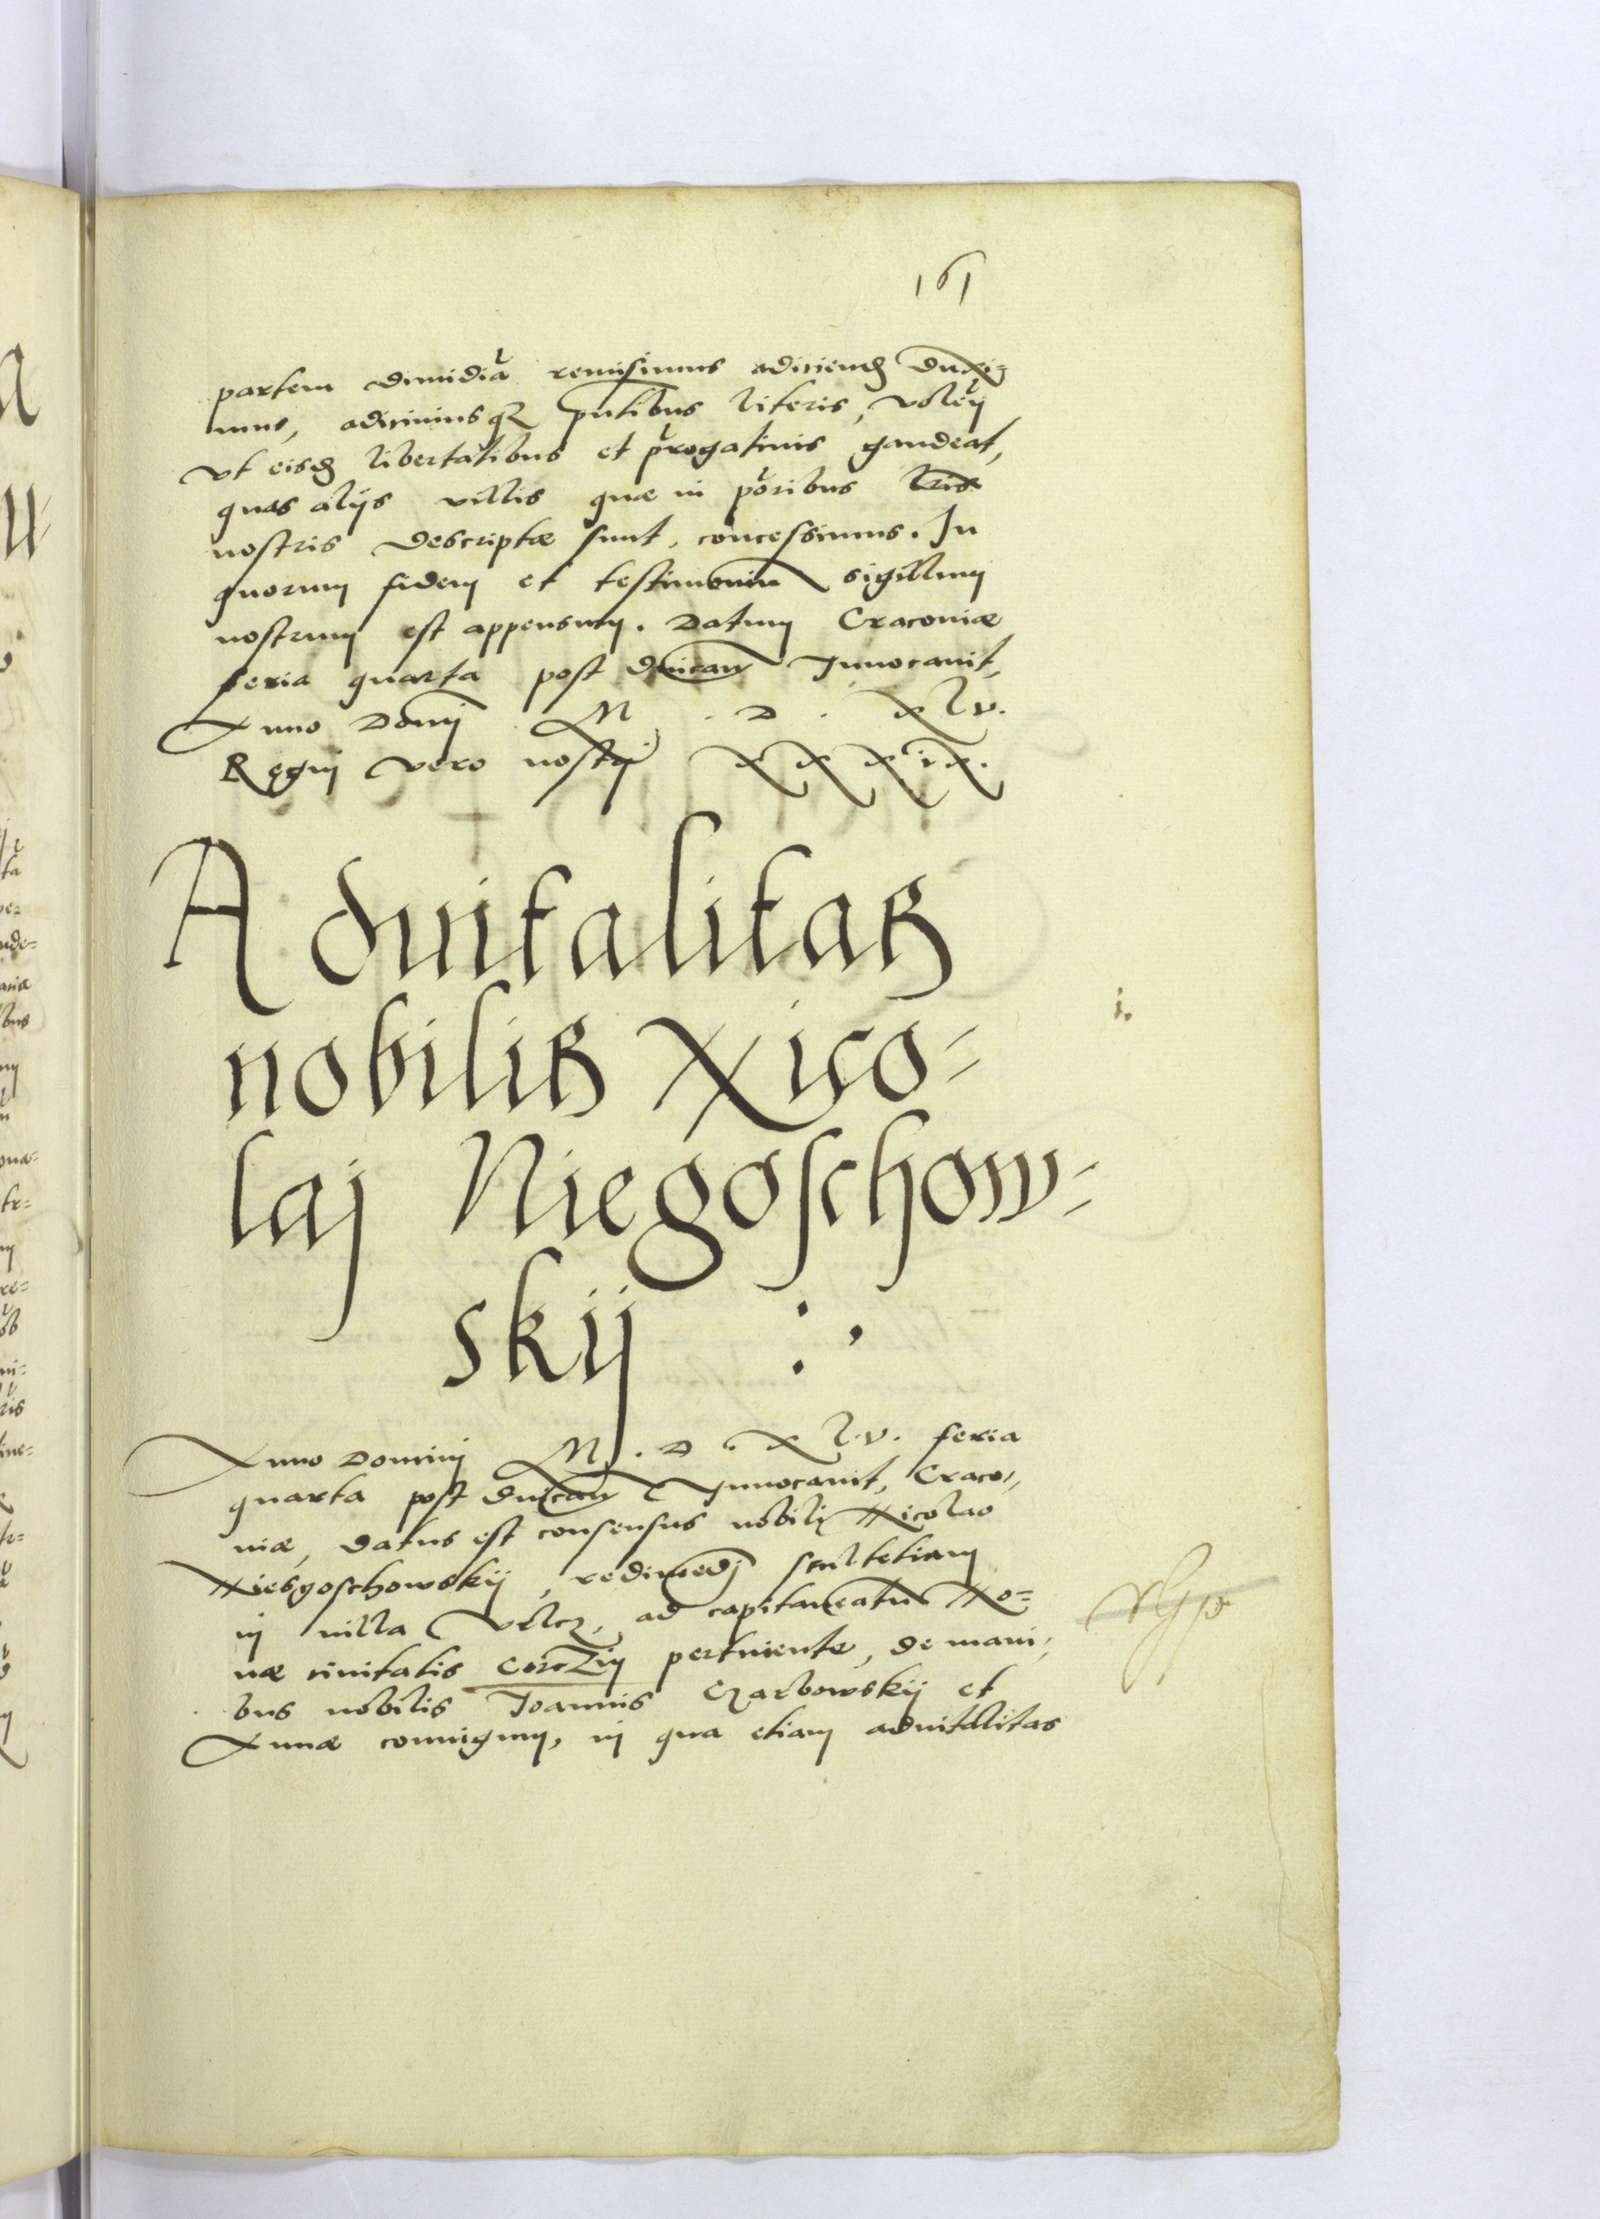 161
partem dimidiā remisimus adiiciend duxi=
mus, adiicimusqꝫ pn̄tibus literis, volen
vt eisd libertatibus et prrogatiuis gaudeat,
quas alijs villis quæ in prioribus lr̄is
nostris descriptæ sunt, concessimus. In
quorum fidem et testimoniū sigillum
nostrum est appensum. Datum Cracoviæ
feria quarta post dn̄icam Inuocauit,
Anno Domī M . D . xlv.
Regni vero nostrj xxxix.
Aduitalitas
nobilis Nico=
laj Niegoschow=
skij
Anno Domini M . D . xl.v. feria
quarta post dn̄icam Inuocauit, Craco,
uiæ, datus est consensus nobili Nicolao
Niebgoschowskij, redimēdj scultetiam
in villa Vslcz, ad capitaneatū No=
uæ ciuitatis Corczin pertinente, de mani,
bus nobilis Joannis Czarbowskij et
Annæ coniugum, in qua etiam aduitalitas